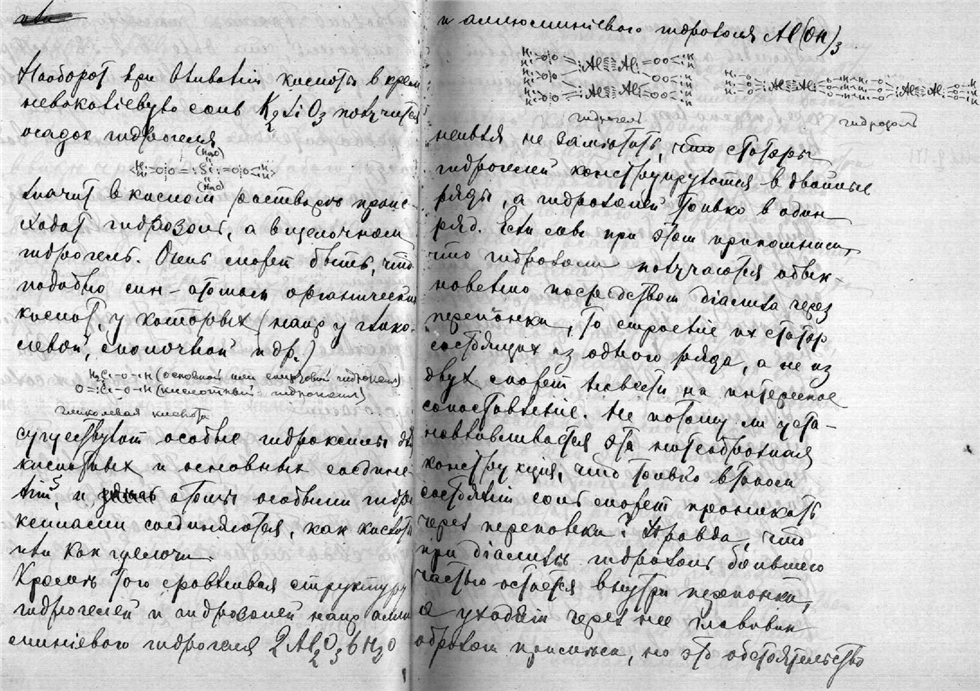 Наоборот при вливании кислоты в крем-
невокалиевую соль K2SiO3 получится
осадок гидрогеля
(H2O)
H2=O=O=:Si:=O=O=H2
(H2O)
Значит в кислом растворе проис-
ходят гидрозоль, а в щелочном
гидрогель. Очень может быть, что
подобно син-атомам органических
кислот, у которых (напр у глико-
левой, молочной и др.)
H2C-O-H (основной или спиртовый гидроксил)
O=C-O-H (кислотный гидроксил)
гликолевая кислота
существуют особые гидроксилы для
кислотных и основных соедине-
ний, и атомы особыми гидро-
ксилами соединяются, как кислоты
или как щелочи
Кроме того сравнивая структуры
гидрогелей и гидрозолей напр алю-
миниевого гидрогеля 2Al2O3 6H2O
и аллюминиевого гидрозоля Al(OH)3
гидрогель гидрозоль
нельзя не заметить, что статоры
гидрогелей конструируются в двойные
ряды, а гидрозолей только в один
ряд. Если мы при этом припомним,
что гидрозоли получаются обык-
новенно посредством діализа через
перепонки, то строение их статор
состоящих из одного ряда, а не из
двух может навести на интересное
сопоставление. Не потому ли уста-
навливается эта
конструкция, что только в таком
состоянии соль может проникать
через перепонки? Правда, что
при діализе гидрозоль большею
частью остается внутри перепонки,
а уходят через нее главным
образом примеси, но это обстоятельство